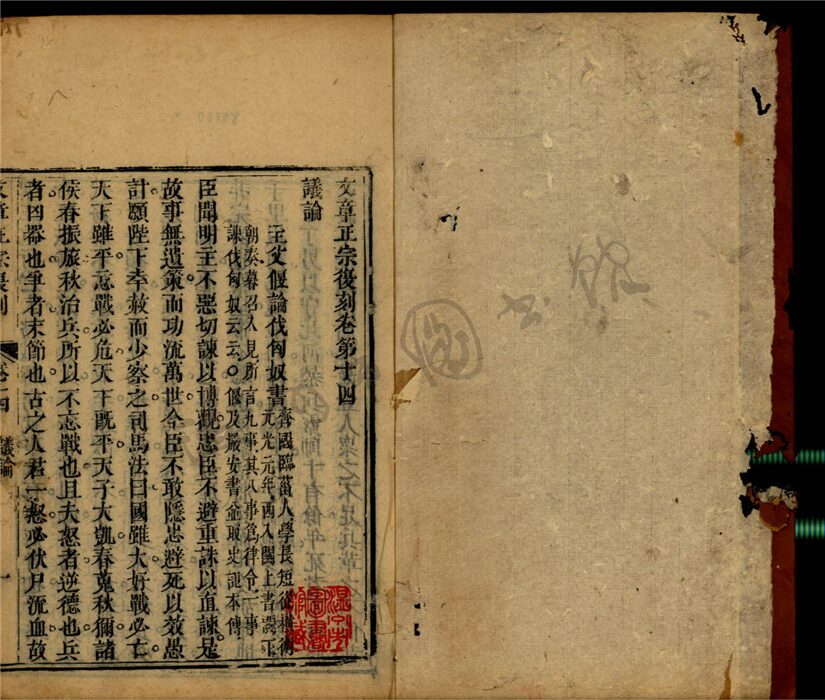 文章正宗復刻卷第十四
議論
主父偃論伐匈奴書
齊國臨菑人學長短從橫術
元光元年西入關上書闕下
朝奏暮召入見所言九事其八事爲律令一事
諫伐匈奴云云。偃及嚴安書並取史記本傳
臣聞明主不惡切諫以博觀忠臣不避重誅以直諫是
故事無遺策而功流萬世今臣不敢隱忠避死以效愚
計願陛下幸赦而少察之司馬法曰國雖大好戰必亡
天下雖平忘戰必危天下既平天子大凱春蒐秋獮諸
侯春振旅秋治兵所以不忘戰也且夫怒者逆德也兵
者凶器也爭者末節也古之人君一怒必伏尸流血故
文章正宗復刻
卷十四